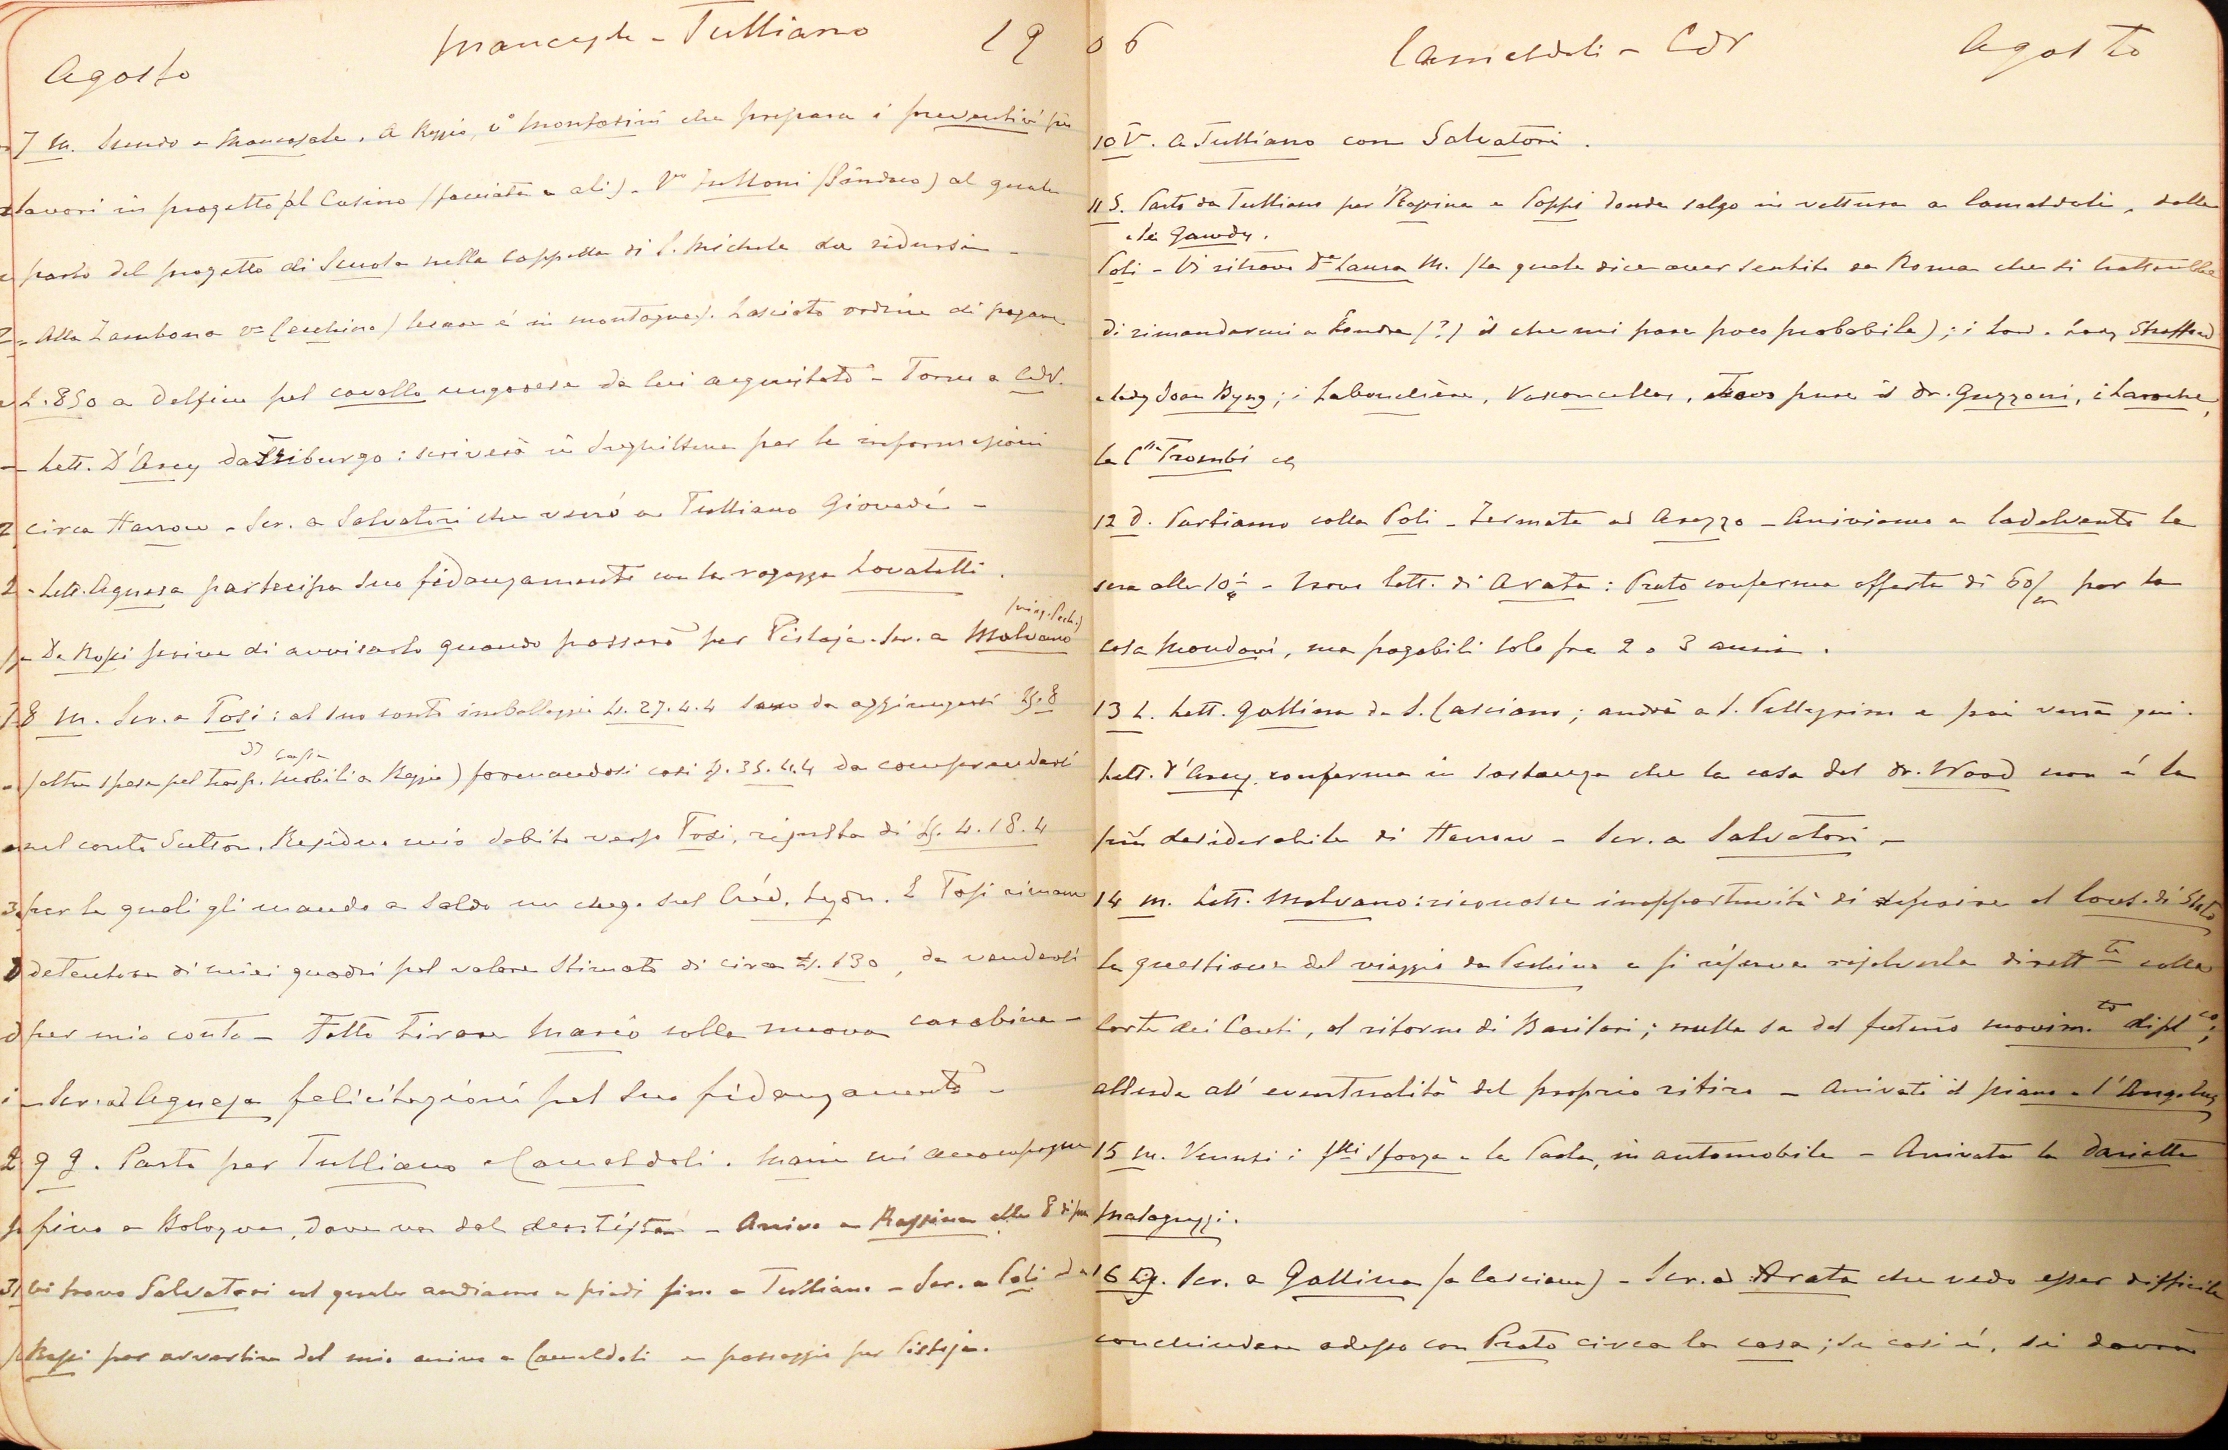 Agosto
Mancasale - Tulliano 19
7 M. Scendo a Mancasale. A Reggio, v° Monforini che prepara i preventivi pei
lavori in progetto pel Casino (facciata e ali). V° (Sindaco) al quale
parlo del progetto di Scuola nella cappella di S. Michele da ridursi -
Alla Zambona v° Cecchino ( è in montagna). Lasciato ordine di pagare
L. 850 a Delfino pel cavallo ungherese da lui acquistato - Torno a CdV.
- Lett. D'Arcy da Friburgo: scriverà in Inghilterra per le informazioni
circa Harrow - Scr. a Salvatori che verrò a Tulliano Giovedì -
- Lett. Agnesa partecipa suo fidanzamento con la ragazza Lovatelli.
(viag. Pech.)
- De Rossi scrive di avvisarlo quando passerò per Pistoja. Scr. a Malvano
8 M. Scr. a Tosi: al suo conto imballaggi Ls. 27.4.4 sono da aggiungersi Ls. 8
di cassa
(altre spese pel trasp. mobili a Reggio) formandosi così Ls. 35.4.4 da comprendersi
nel conto Sutton. Residuo mio debito verso Tosi, risulta di Ls. 4.18.4
per le quali gli mando a saldo un cheq. sul Créd. Lyon. E Tosi rimane
detentore di miei quadri pel valore stimato di circa Ls. 130, da vendersi
per mio conto - Fatto tirare Mario colla nuova carabina -
- Scr. ad Agnesa felicitazioni pel suo fidanzamento -
9 G. Parto per Tulliano e Camaldoli. Mario mi accompagna
fino a Bologna, dove va dal dentista - Arrivo a Rassina alle 8 di sera
Vi trovo Salvatori col quale andiamo a piedi fino a Tulliano - Scr. a Poli e De
Rossi per avvertire del mio arrivo a Camaldoli e passaggio per Pistoja.
06 Camaldoli - CdV Agosto
10 V. A Tulliano con Salvatori.
11 S. Parto da Tulliano per Rassina e Poppi donde salgo in vettura a Camaldoli, dalla
e dai Gawdy.
Poli - Vi ritrovo Da Laura M. (la quale dice aver sentito da Roma che si tratterebbe
di rimandarmi a Londra (?) il che mi pare poco probabile); i Lord e Lady Strafford
e Lady Joan Byng; i Labouchère, Vasconcellos, trovo pure il Dr. Guzzoni, i Laroche,
la C.ssa Trombi
12 D. Partiamo colla Poli - Fermata ad Arezzo - Arriviamo a Cadelvento la
sera alle 10 - Trovo lett. di Arata: Prato conferma offerta di 60/m per la
casa Mondovì, ma pagabili solo fra 2 o 3 anni.
13 L. Lett. Gallina da S. Casciano; andrà a S. Pellegrino e poi verrà qui.
Lett. d'Arcy conferma in sostanza che la casa del Dr. Wood non è la
più desiderabile di Harrow - Scr. a Salvatori -
14 M. Lett. Malvano: riconosce inopportunità di deferire al Cons. di Stato
la questione del viaggio da Pechino e si riserva risolverla dirett.te colla
Corte dei Conti, al ritorno di Barilari; nulla sa del futuro movim.to dipl.co;
allude all'eventualità del proprio ritiro - Arrivati il piano e l'Angelus
15 M. Venuti i f.lli Sforza e la Paola, in automobile - Arrivata la Darietta
Malaguzzi.
16 G. Scr. a Gallina (a Casciano) - Scr. ad Arata che vedo esser difficile
conchiudere adesso con Prato circa la casa; se così è, si dovrà